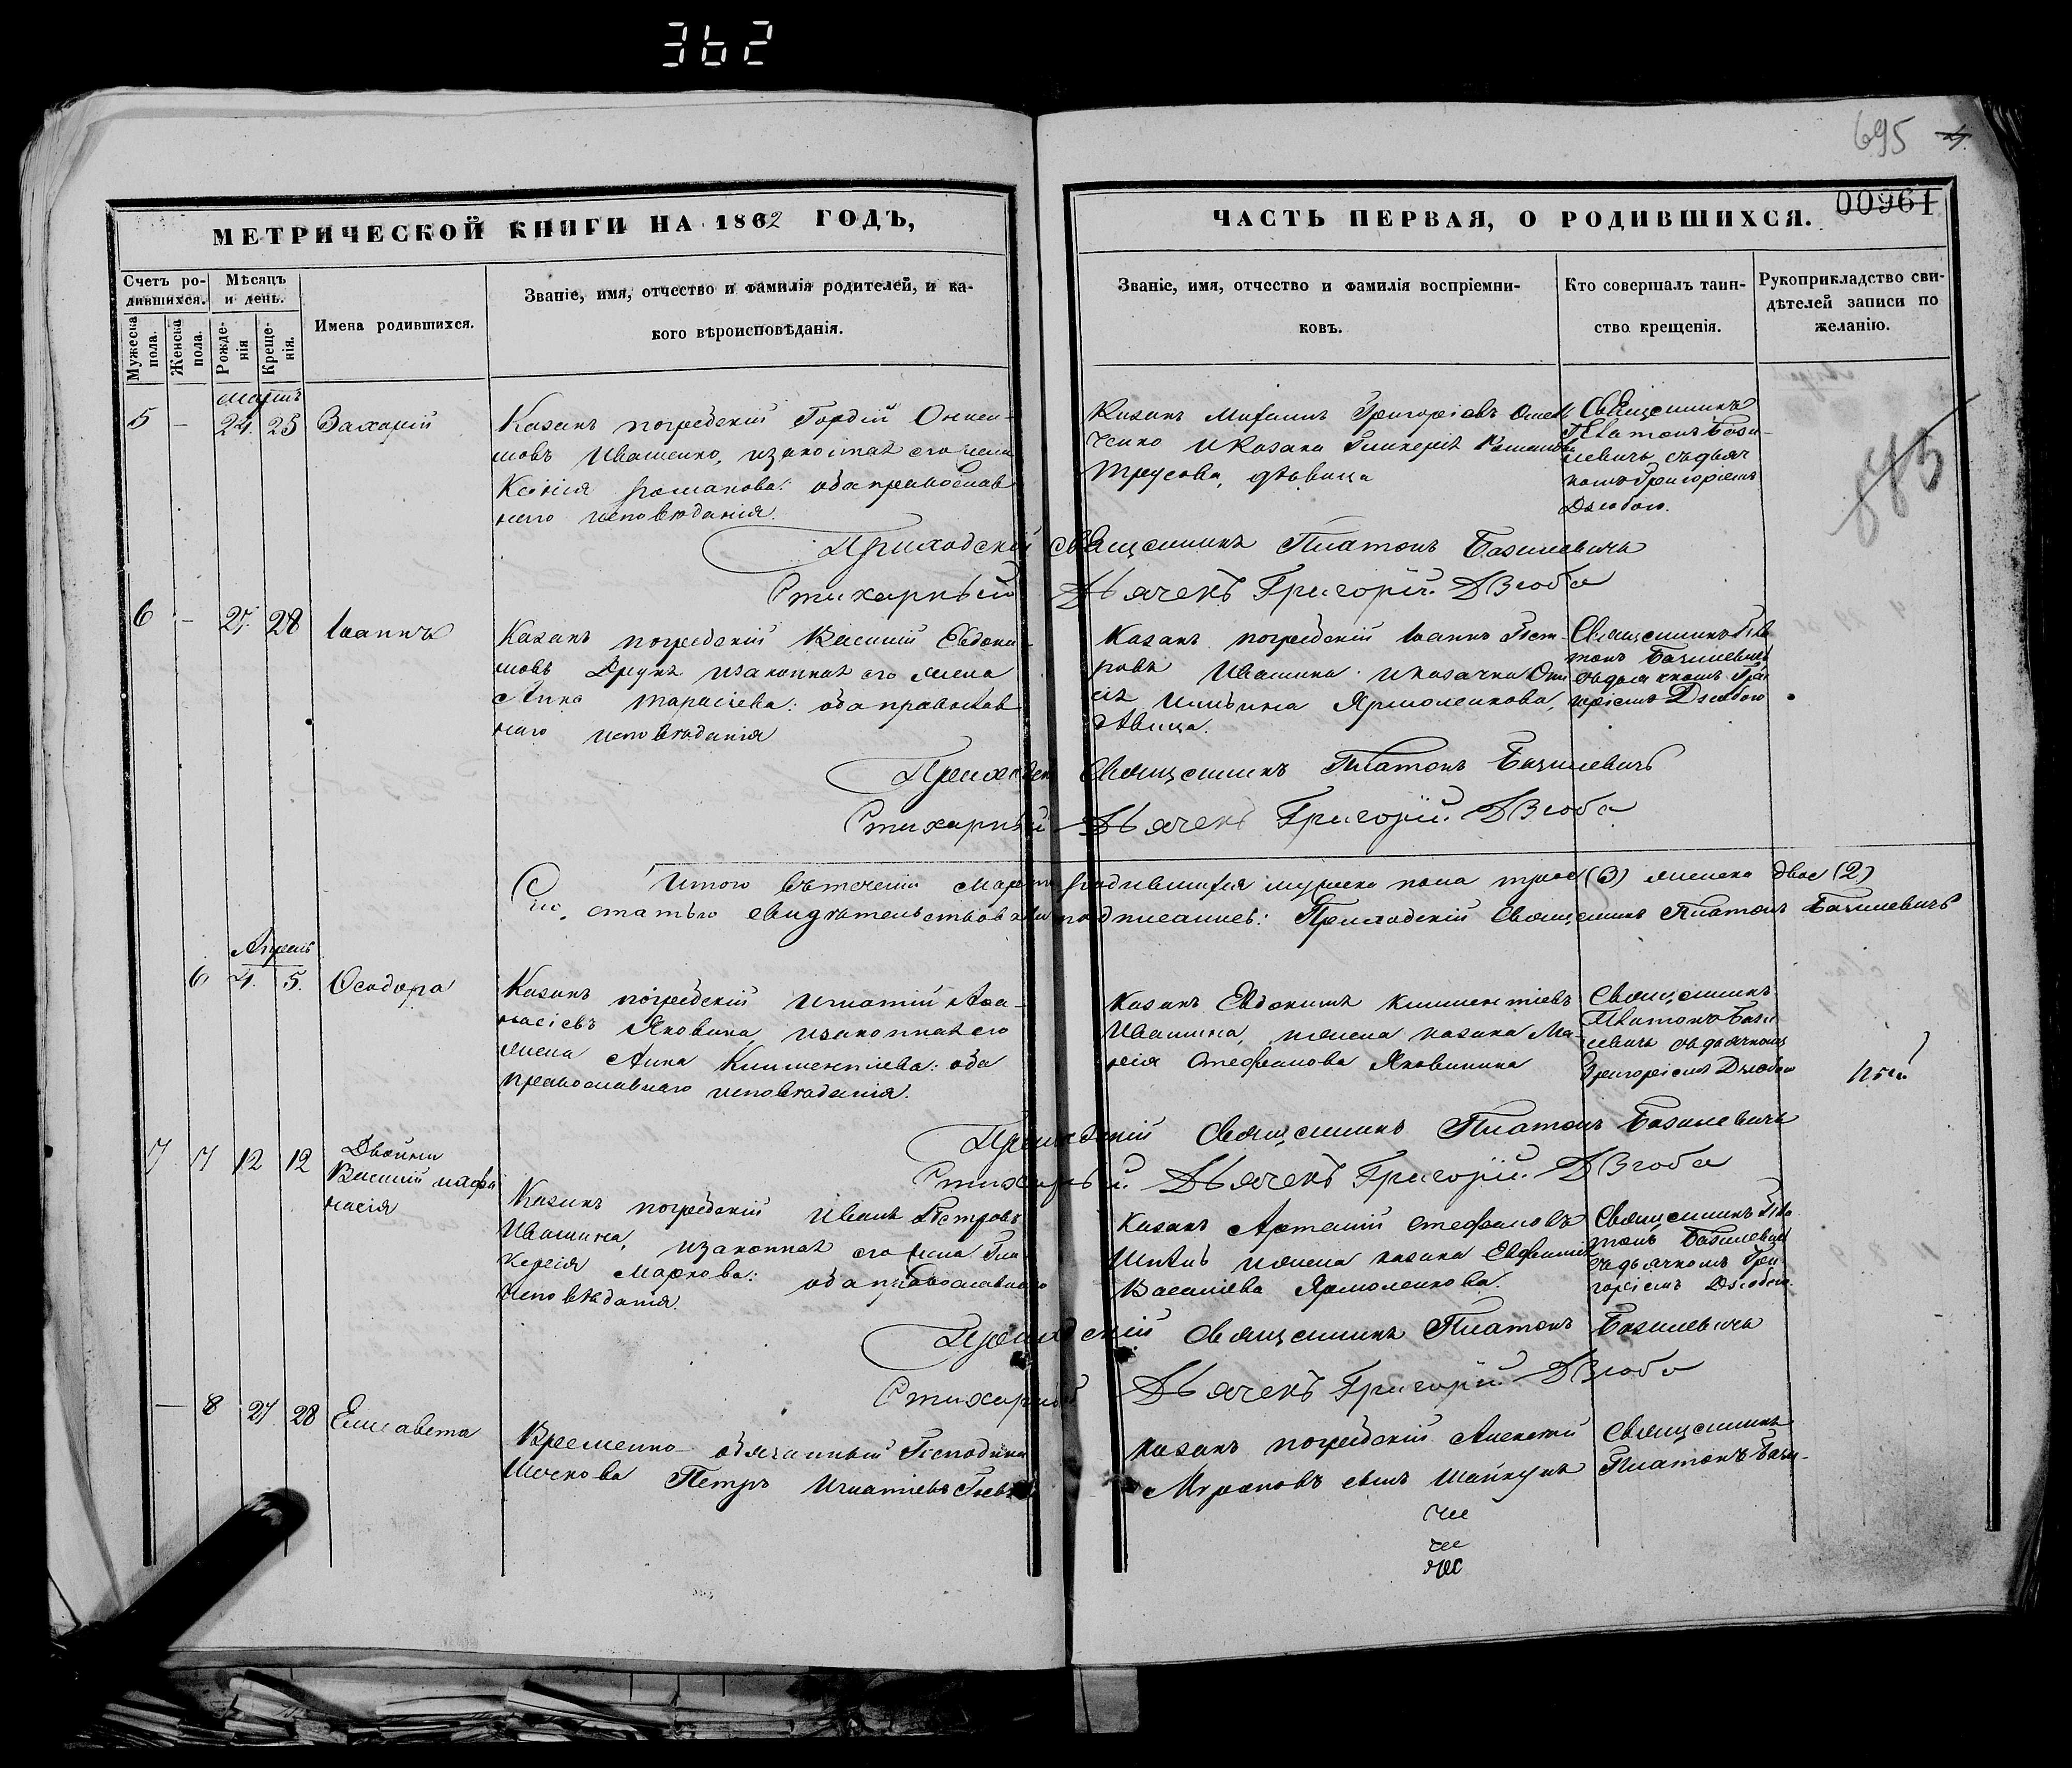 362
695
00961
МЕТРИЧЕСКОЙ КНИГИ НА 1862 ГОДЪ,
ЧАСТЬ ПЕРВАЯ, О РОДИВШИХСЯ.
Счетъ ро-
дившихся.
Мѣсяцъ
и день.
Мужеска пола.
Женска пола.
Рожде-
нія
Креще-
нія.
Имена родившихся.
Званіе, имя, отчество и фамилія родителей, и ка-
кого вѣроисповѣданія.
Званіе, имя, отчество и фамилія воспріемни-
ковъ.
Кто совершалъ таин-
ство крещенія.
Рукоприкладство сви-
дѣтелей записи по
желанію.
Мартъ
5 — 24. 25 Захарій
Казакъ погребскій Гордій Ониси-
мовъ Ивашенко, изаконная его жена
Ксенія Романова: оба православ
наго исповѣданія.
Казакъ Михаилъ Григоріевъ
ченко и Казака Гликерія Романова
Трусова, дѣвица
Священникъ
Платонъ Бази-
левичъ съ дьяч
комъ Григоріемъ
Дзюбою.
Приходскій Священникъ Платонъ Базилевичъ
Стихарный Дьячекъ Григорій Дзюба
6 — 27. 28 Іоаннъ
Казакъ погребскій Василій Евдоки-
мовъ Друкъ изаконная его жена
Анна Тарасіева: оба православ
наго исповѣданія
Казакъ погребскій Іоаннъ Пет-
ровъ Ивашина и казачка
Ильина Ярмоленкова,
дѣвица.
Священникъ Пла
тонъ Базилевичъ
съ дьячкомъ Гри
горіемъ Дзюбою
Приходскій Священникъ Платонъ Базилевичъ
Стихарный Дьячекъ Григорій Дзюба
Итого въ теченіи Марта родившихся мужеска пола трое (3) женска двое (2)
Сію статью свидѣтельствовалъ и подписалъ: Приходскій Священникъ Платонъ Базилевичъ
Апрель
6 4. 5. Ѳеодора
Казакъ погребскій Игнатій Аѳа-
насіевъ Яковина, изаконная его
жена Анна Климентіева: оба
православнаго исповѣданія.
Казакъ Евдокимъ Климентіевъ
Ивашина, и жена казака Ма-
рія Стефанова Яковинина
Священникъ
Платонъ Бази
левичъ съ дьячкомъ
Григоріемъ Дзюбою
Приходскій Священникъ Платонъ Базилевичъ
Стихарный Дьячекъ Григорій Дзюба
7 7 12 12 Двойни
Василій и Аѳа
насія
Казакъ погребскій Иванъ Петровъ
Ивашина, изаконная его жена Гли
керія Маркова: оба православнаго
исповѣданія.
Казакъ Артемій Стефановъ
и жена казака Евфимія
Василіева Ярмоленкова.
Священникъ Пла
тонъ Базилевичъ
съ дьячкомъ Гри
горіемъ Дзюбою.
Приходскій Священникъ Платонъ Базилевичъ
Стихарный Дьячекъ Григорій Дзюба
— 8 27 28 Елисавета
Временно-обязанный Господина
Петръ Игнатіевъ
Казакъ погребскій Алексей
сынъ
Священникъ
Платонъ Бази-